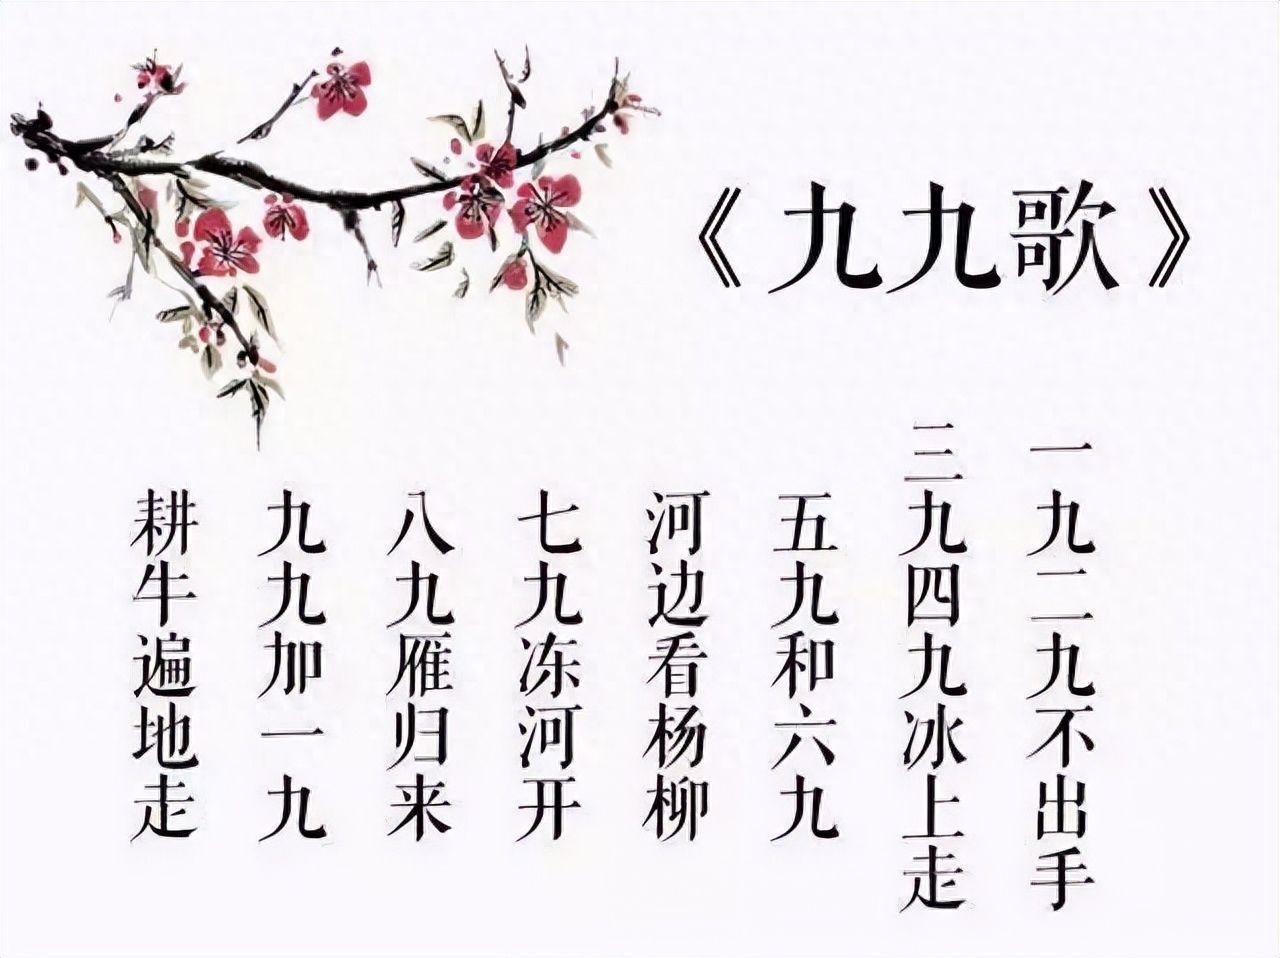 《九九歌》
一九二九不出手
三九四九冰上走
五九和六九
河边看杨柳
七九冻河开
八九雁归来
九九加一九
耕牛遍地走